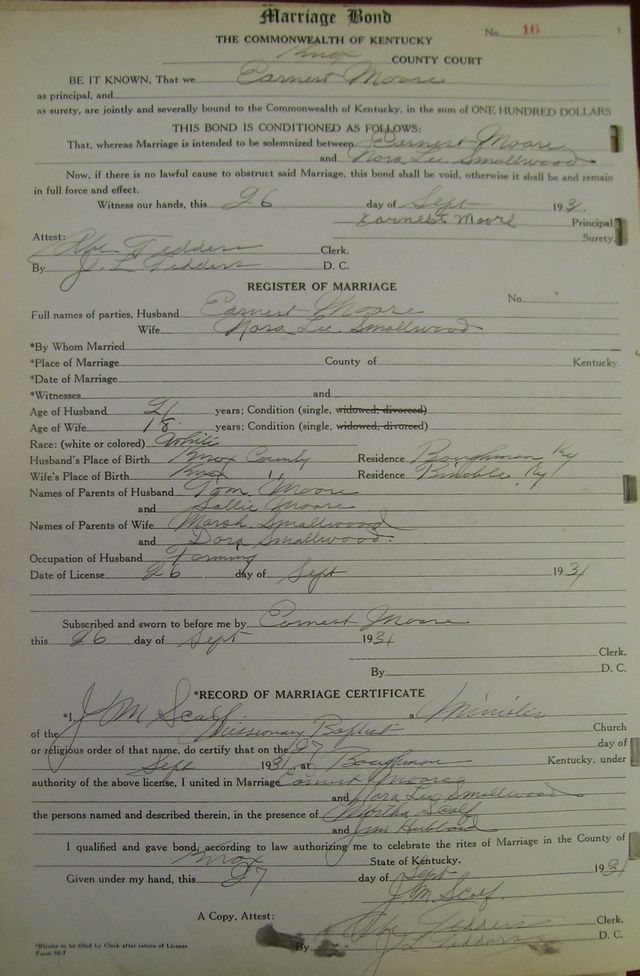 Marriage Bond
No. 16
THE COMMONWEALTH OF KENTUCKY
Knox COUNTY COURT
BE IT KNOWN, That we Earnest Moore
as principal, and
as surety, are jointly and severally bound to the Commonwealth of Kentucky, in the sum of ONE HUNDRED DOLLARS
THIS BOND IS CONDITIONED AS FOLLOWS:
That, whereas Marriage is intended to be solemnized between Earnest Moore
and Nora Lee Smallwood
Now, if there is no lawful cause to obstruct said Marriage, this bond shall be void, otherwise it shall be and remain
in full force and effect.
Witness our hands, this 26 day of Sept 1931
Earnest Moore Principal
Surety.
Attest:
Abe Tedders Clerk.
By J. L. Tedders D. C.
REGISTER OF MARRIAGE
No.
Full names of parties, Husband Earnest Moore
Wife Nora Lee Smallwood
*By Whom Married
*Place of Marriage County of Kentucky.
*Date of Marriage
*Witnesses and
Age of Husband 21 years; Condition (single, widowed, divorced)
Age of Wife 18 years; Condition (single, widowed, divorced)
Race: (white or colored) White
Husband's Place of Birth Knox County Residence Baughman Ky
Wife's Place of Birth Knox " Residence Bimble Ky
Names of Parents of Husband Tom Moore
and Sallie Moore
Names of Parents of Wife Marsh Smallwood
and Dora Smallwood.
Occupation of Husband Farming
Date of License 26 day of Sept 1931
Subscribed and sworn to before me by Earnest Moore
this 26 day of Sept 1931
Clerk.
By D. C.
*RECORD OF MARRIAGE CERTIFICATE
*I, J M Scalf a Minister
of the Missionary Baptist Church
or religious order of that name, do certify that on the 27 day of
Sept 1931, at Baughman Kentucky, under
authority of the above license, I united in Marriage Earnest Moore
and Nora Lee Smallwood
the persons named and described therein, in the presence of Martha Scalf
and Jim Hubbard
I qualified and gave bond, according to law authorizing me to celebrate the rites of Marriage in the County of
Knox State of Kentucky.
Given under my hand, this 27 day of Sept 1931
J. M. Scalf.
A Copy, Attest: Abe Tedders Clerk.
By J L Tedders D. C.
*Blanks to be filled by Clerk after return of License